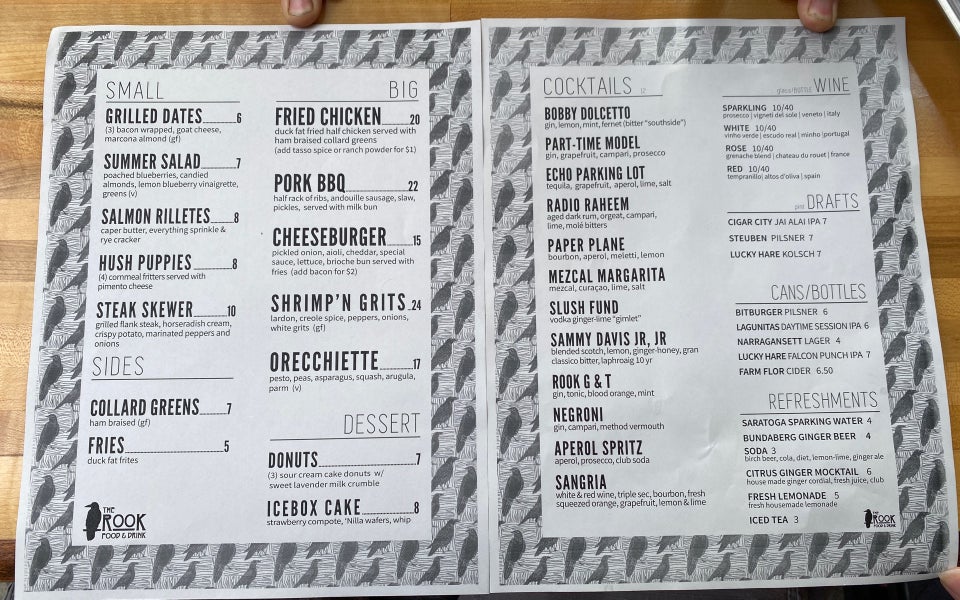 SMALL
GRILLED DATES 6
(3) bacon wrapped, goat cheese,
marcona almond (gf)
SUMMER SALAD 7
poached blueberries, candied
almonds, lemon blueberry vinaigrette,
greens (v)
SALMON RILLETES 8
caper butter, everything sprinkle &
rye cracker
HUSH PUPPIES 8
(4) cornmeal fritters served with
pimento cheese
STEAK SKEWER 10
grilled flank steak, horseradish cream,
crispy potato, marinated peppers and
onions
SIDES
COLLARD GREENS 7
ham braised (gf)
FRIES 5
duck fat frites
THE
ROOK
FOOD & DRINK
BIG
FRIED CHICKEN 20
duck fat fried half chicken served with
ham braised collard greens
(add tasso spice or ranch powder for $1)
PORK BBQ 22
half rack of ribs, andouille sausage, slaw,
pickles, served with milk bun
CHEESEBURGER 15
pickled onion, aioli, cheddar, special
sauce, lettuce, brioche bun served with
fries (add bacon for $2)
SHRIMP'N GRITS 24
lardon, creole spice, peppers, onions,
white grits (gf)
ORECCHIETTE 17
pesto, peas, asparagus, squash, arugula,
parm (v)
DESSERT
DONUTS 7
(3) sour cream cake donuts w/
sweet lavender milk crumble
ICEBOX CAKE 8
strawberry compote, 'Nilla wafers, whip
COCKTAILS 12
BOBBY DOLCETTO
gin, lemon, mint, fernet (bitter "southside")
PART-TIME MODEL
gin, grapefruit, campari, prosecco
ECHO PARKING LOT
tequila, grapefruit, aperol, lime, salt
RADIO RAHEEM
aged dark rum, orgeat, campari,
lime, molé bitters
PAPER PLANE
bourbon, aperol, meletti, lemon
MEZCAL MARGARITA
mezcal, curaçao, lime, salt
SLUSH FUND
vodka ginger-lime "gimlet"
SAMMY DAVIS JR, JR
blended scotch, lemon, ginger-honey, gran
classico bitter, laphroaig 10 yr
ROOK G & T
gin, tonic, blood orange, mint
NEGRONI
gin, campari, method vermouth
APEROL SPRITZ
aperol, prosecco, club soda
SANGRIA
white & red wine, triple sec, bourbon, fresh
squeezed orange, grapefruit, lemon & lime
glass/BOTTLE WINE
SPARKLING 10/40
prosecco | vigneti del sole | veneto | italy
WHITE 10/40
vinho verde | escudo real | minho | portugal
ROSE 10/40
grenache blend | chateau du rouet | france
RED 10/40
tempranillo| altos d'oliva | spain
pint DRAFTS
CIGAR CITY JAI ALAI IPA 7
STEUBEN PILSNER 7
LUCKY HARE KOLSCH 7
CANS/BOTTLES
BITBURGER PILSNER 6
LAGUNITAS DAYTIME SESSION IPA 6
NARRAGANSETT LAGER 4
LUCKY HARE FALCON PUNCH IPA 7
FARM FLOR CIDER 6.50
REFRESHMENTS
SARATOGA SPARKING WATER 4
BUNDABERG GINGER BEER 4
SODA 3
birch beer, cola, diet, lemon-lime, ginger ale
CITRUS GINGER MOCKTAIL 6
house made ginger cordial, fresh juice, club
FRESH LEMONADE 5
fresh housemade lemonade
ICED TEA 3
THE
ROOK
FOOD & DRINK